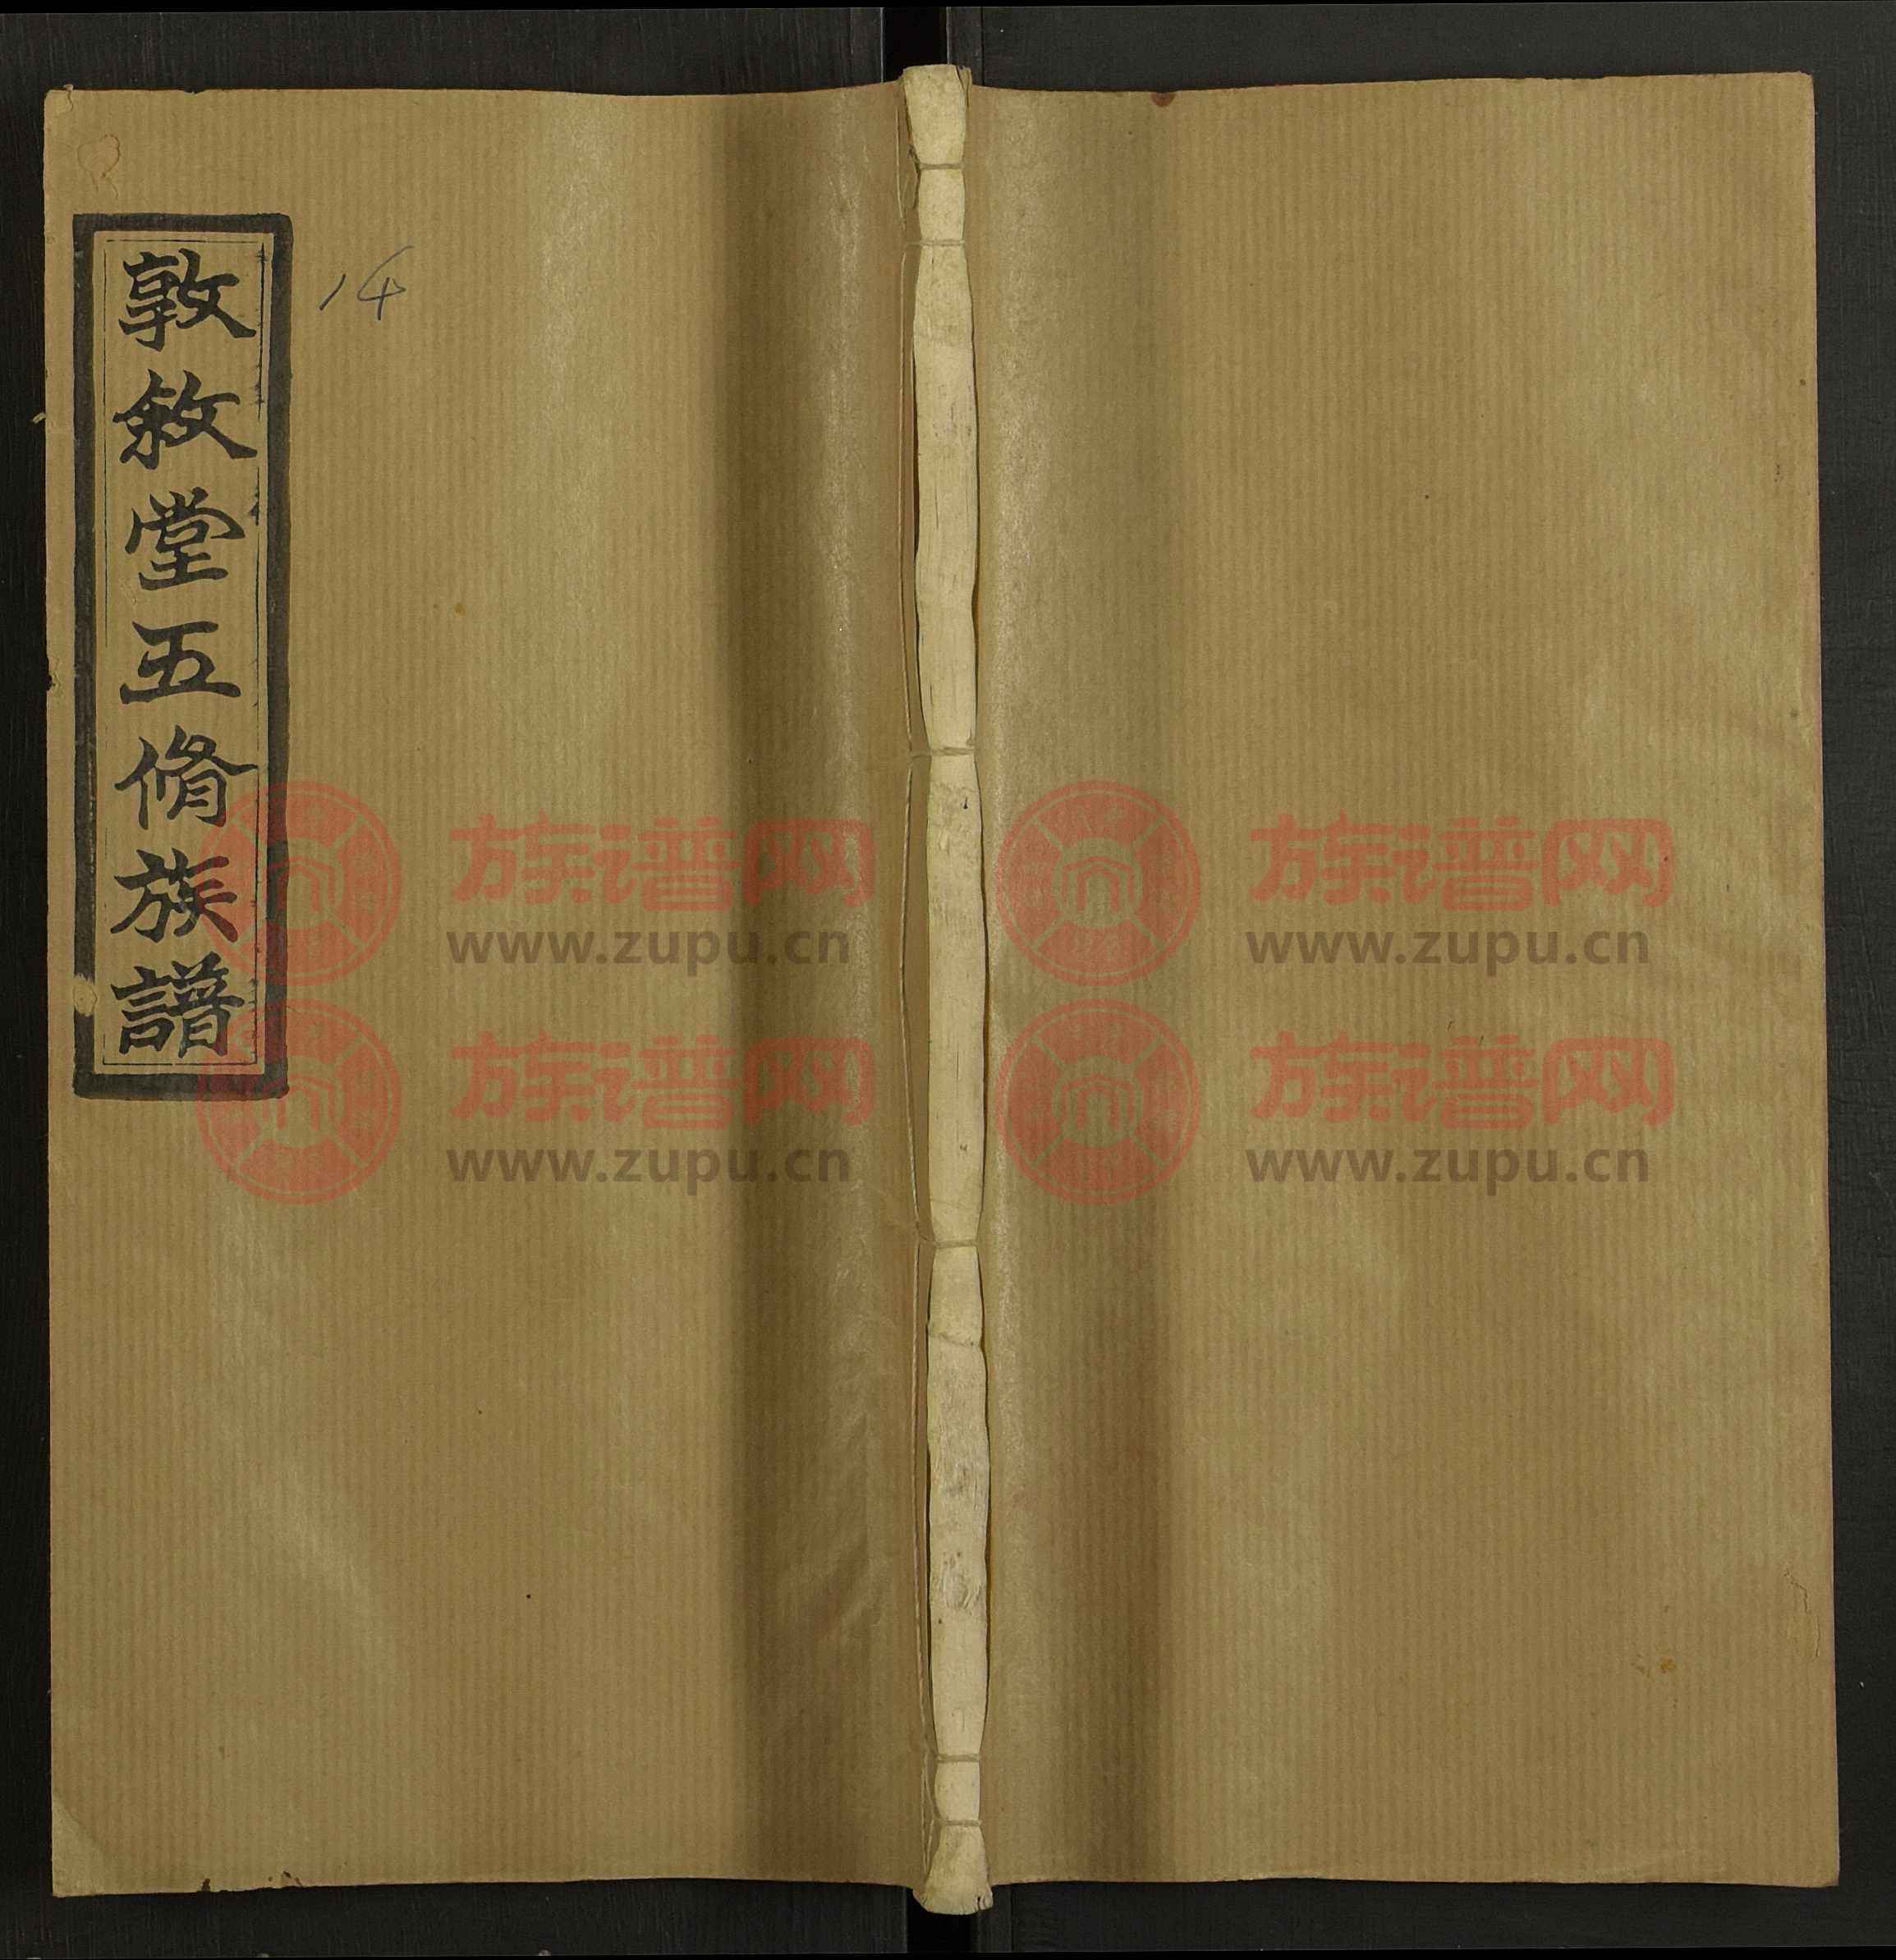 敦敘堂五脩族譜
14
族谱网
www.zupu.cn
族谱网
www.zupu.cn
族谱网
www.zupu.cn
族谱网
www.zupu.cn